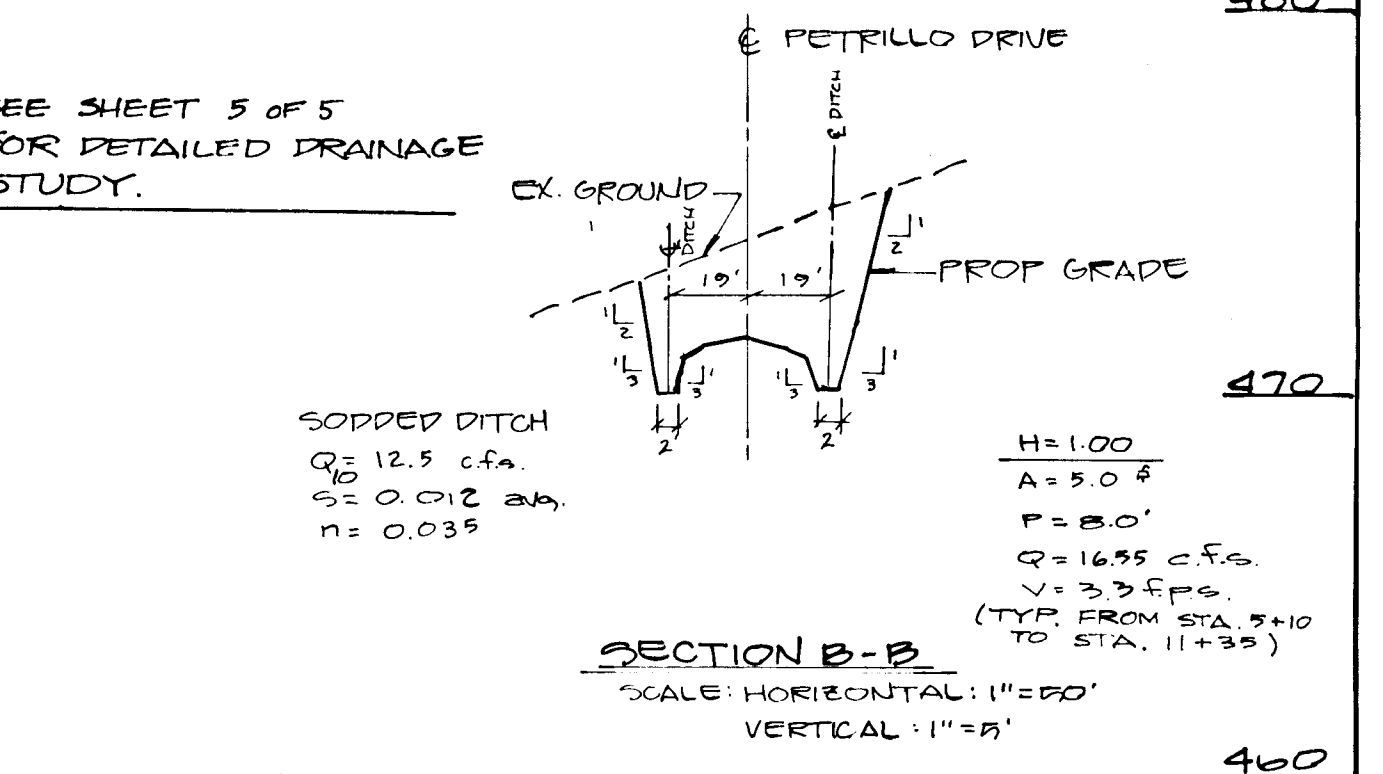 ℄ PETRILLO DRIVE
EE SHEET 5 OF 5
FOR DETAILED DRAINAGE
STUDY.
℄ DITCH
EX. GROUND
℄ DITCH
1
2
19' 19'
PROP GRADE
1
2
1
3
1
3
1
3
1
3
2' 2'
470
SODDED DITCH
Q10 = 12.5 c.f.s.
S = 0.012 avg.
n = 0.035
H = 1.00
A = 5.0
P = 8.0'
Q = 16.55 c.f.s.
V = 3.3 f.p.s.
(TYP. FROM STA. 5+10
TO STA. 11+35)
SECTION B-B
SCALE: HORIZONTAL: 1"=50'
VERTICAL: 1"=5'
460